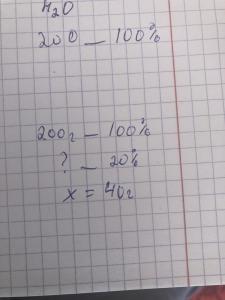 H₂O
200 — 100%
200г — 100%
? — 20%
x = 40г